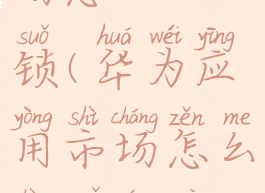 suǒ huá wéi yīng
锁(华为应
yòng shì chǎng zěn me
用市场怎么